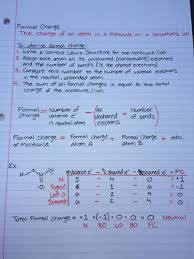 Formal Charge
The charge of an atom in a molecule or a polyatomic ion
To derive formal charge:
1. Write a correct Lewis Structure for the molecule/ion
2. Assign each atom all its unshared (nonbonding) electrons and the number of bonds (½ the shared electrons)
3. Compare this number to the number of valence electrons in the neutral, unbonded atom
4. The sum of all formal charges is equal to the total charge of the molecule/ion
Formal charge = Number of valence e⁻ in a neutral atom − (All unshared e⁻ + Number of bonds)
Formal charge molecule = Formal charge atom + Formal charge atom + etc
Ex:
# Valence e⁻ - ½ Shared e⁻ - # Unshared e⁻ = FC
N: 5 - 4 - 0 = +1
6 - 1 - 6 = -1
6 - 2 - 4 = 0
6 - 2 - 4 = 0
Total Formal charge = +1 + (-1) + 0 + 0 = 0 Neutral
N RO LO BO FC